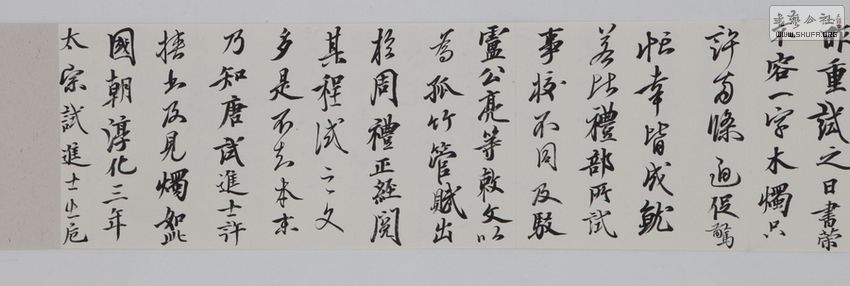 昨重試之日書策
不容一字木燭只
許兩條迫促驚
恇幸皆成就
若比禮部所試
事校不同及駁
盧公亮等敕文以
為孤竹管賦出
於周禮正經閱
其程試之文
多是不知本末
乃知唐試進士許
挾書及見燭如此
國朝淳化三年
太宗試進士出卮
書藝公社
WWW.SHUFA.ORG